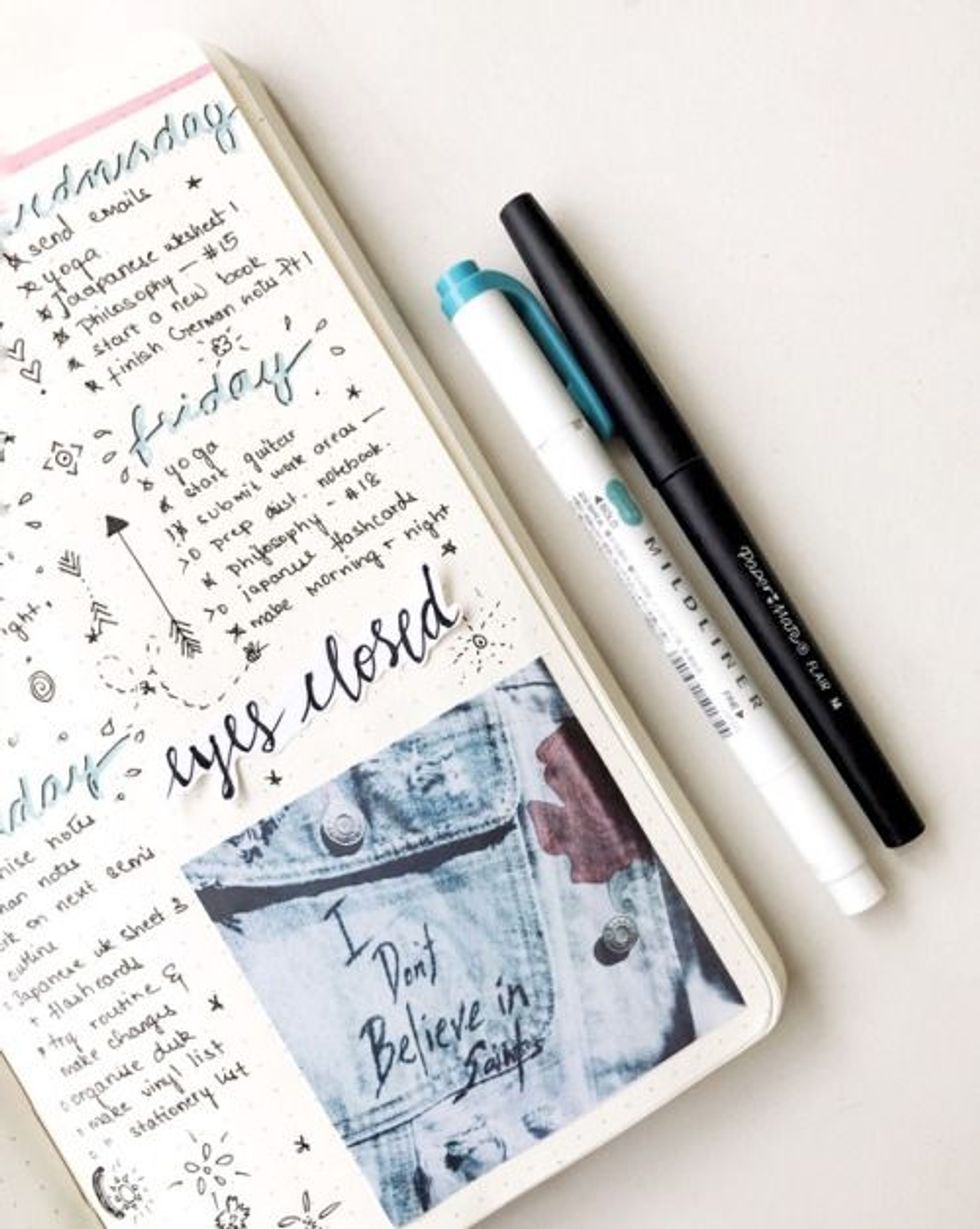 wednesday
send emails
yoga
Japanese wksheet 1
philosophy — #15
start a new book
finish German notes Pt 1
friday
yoga
start guitar
submit work areas —
prep dist. notebook.
philosophy - #18
japanese flashcards
make morning + night
ight.
eyes closed
day
nise notes
man notes
on next semis
outline
Japanese wk sheet 3
+ flashcards
try routine &
make changes
organise
make vinyl list
" stationery list
I
Don't
Believe in
Saints
BOLD
MILDLINER
FINE
Paper:Mate® FLAIR M